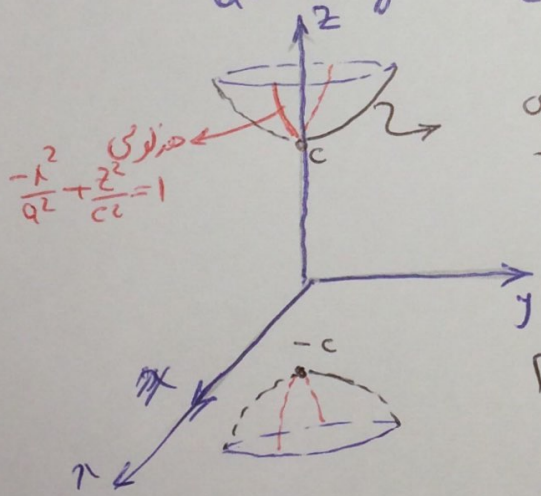 z
c
هذلولی
-x²/a² + z²/c² = 1
y
-c
x
x